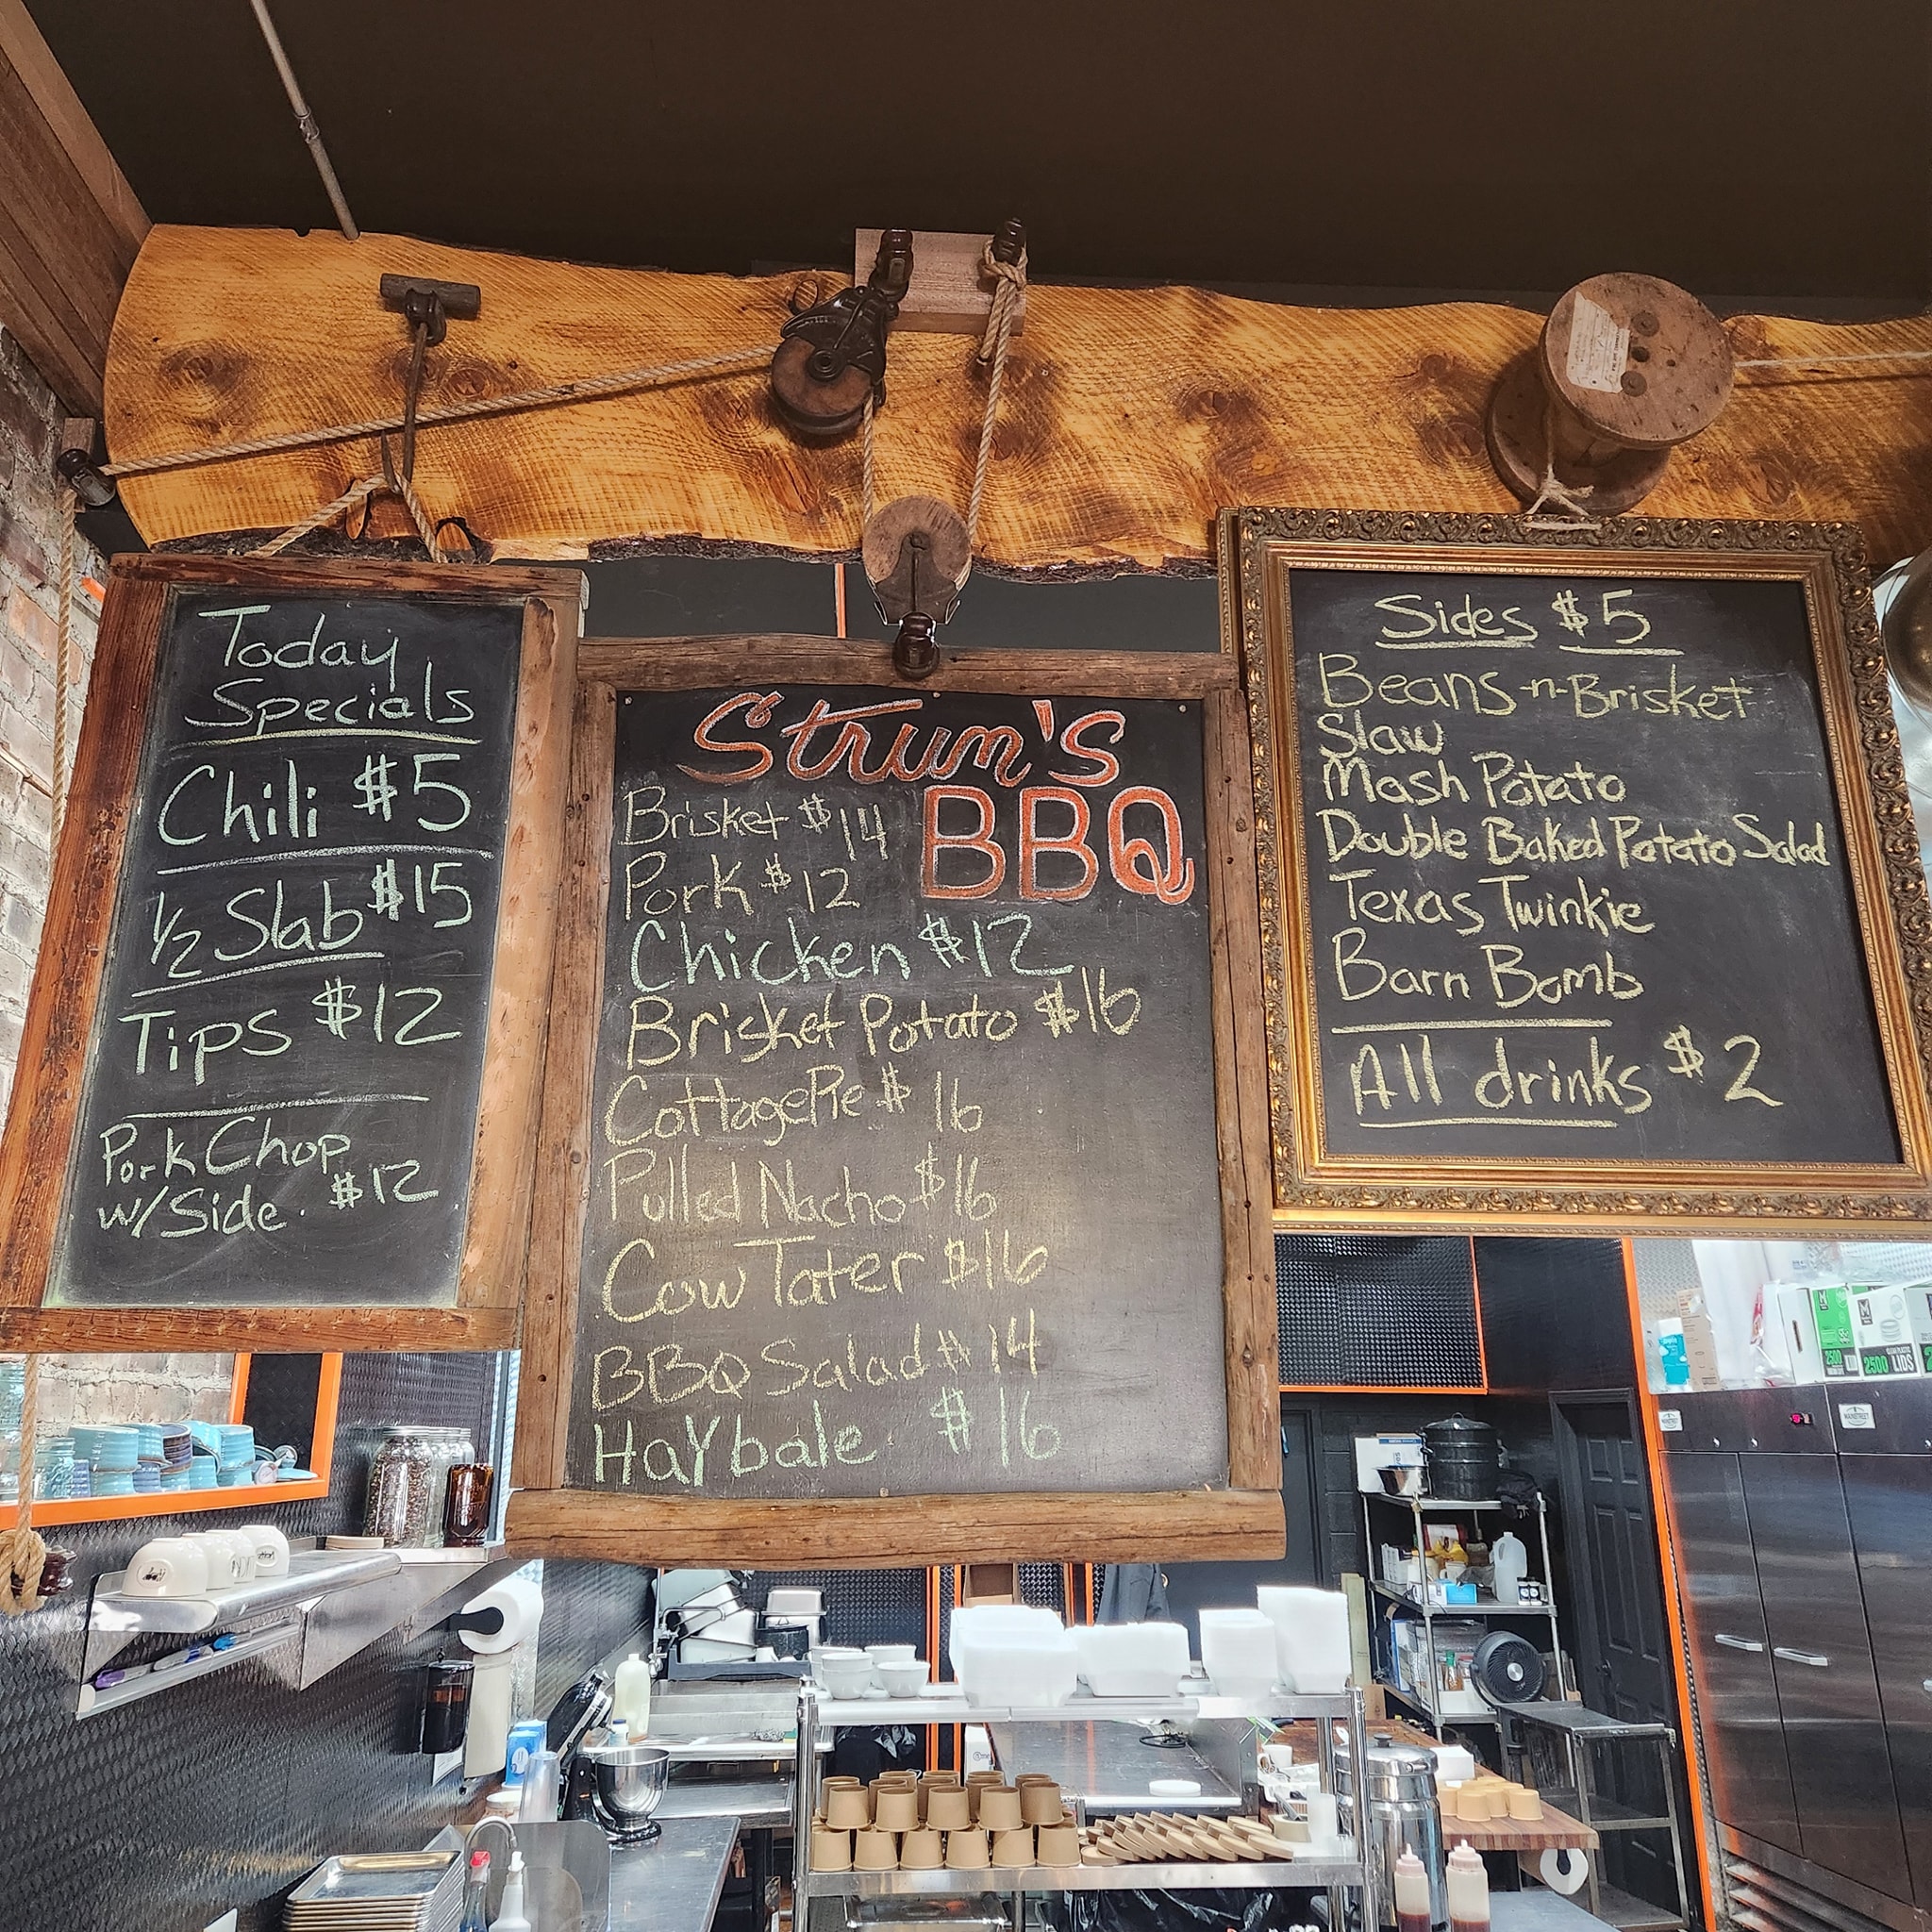 Today
Specials
Chili $5
1/2 Slab $15
Tips $12
Pork Chop
w/Side. $12
Strum's
BBQ
Brisket $14
Pork $12
Chicken $12
Brisket Potato $16
Cottage Pie $16
Pulled Nacho $16
Cow Tater $16
BBQ Salad $14
HaYbale $16
Sides $5
Beans-n-Brisket
Slaw
Mash Potato
Double Baked Potato Salad
Texas Twinkie
Barn Bomb
All drinks $2
2500
2500 LIDS